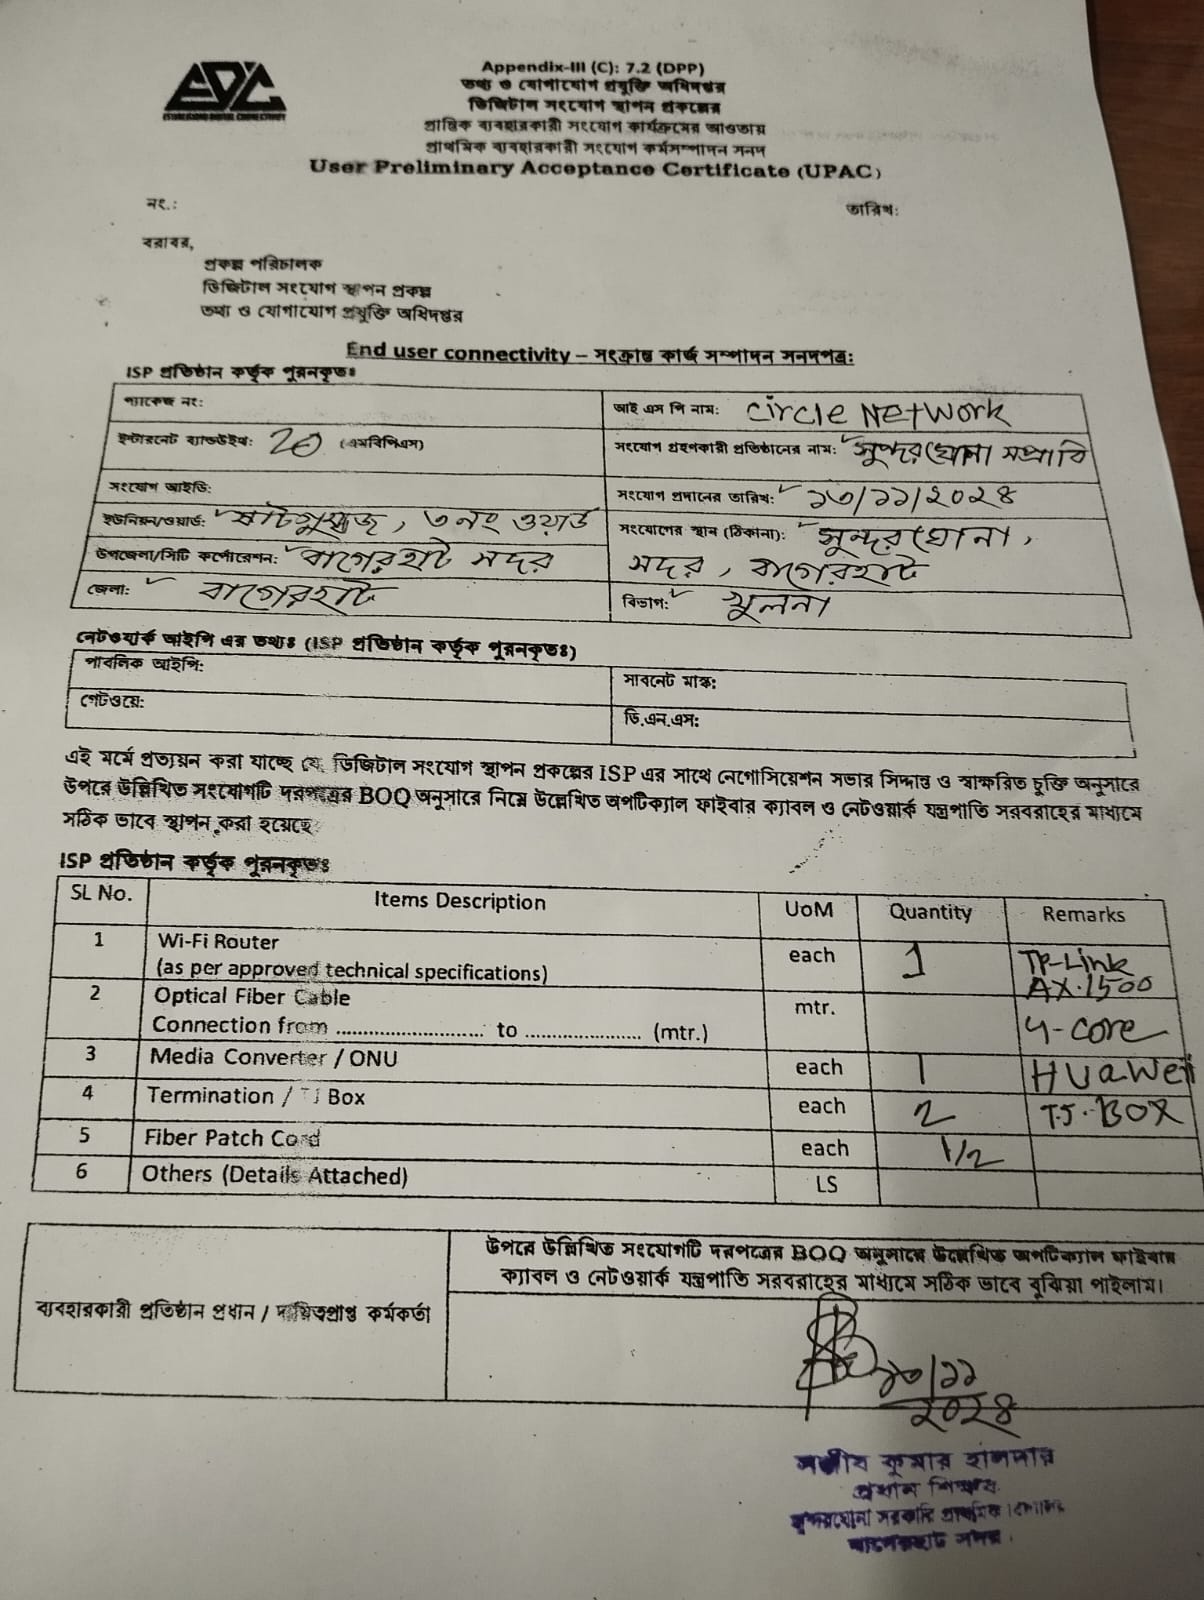 EDC
ESTABLISHING DIGITAL CONNECTIVITY
Appendix-III (C): 7.2 (DPP)
তথ্য ও যোগাযোগ প্রযুক্তি অধিদপ্তর
ডিজিটাল সংযোগ স্থাপন প্রকল্পের
প্রান্তিক ব্যবহারকারী সংযোগ কার্যক্রমের আওতায়
প্রাথমিক ব্যবহারকারী সংযোগ কর্মসম্পাদন সনদ
User Preliminary Acceptance Certificate (UPAC)
নং.:
তারিখ:
বরাবর,
প্রকল্প পরিচালক
ডিজিটাল সংযোগ স্থাপন প্রকল্প
তথ্য ও যোগাযোগ প্রযুক্তি অধিদপ্তর
End user connectivity – সংক্রান্ত কার্জ সম্পাদন সনদপত্র:
ISP প্রতিষ্ঠান কর্তৃক পূরনকৃতঃ
প্যাকেজ নং:
আই এস পি নাম: Circle Network
ইন্টারনেট ব্যান্ডউইথ: 20 (এমবিপিএস)
সংযোগ গ্রহণকারী প্রতিষ্ঠানের নাম: সুন্দরঘোনা সপ্রাবি
সংযোগ আইডি:
সংযোগ প্রদানের তারিখ: ১৩/১১/২০২৪
ইউনিয়ন/ওয়ার্ড: ষাটগুম্বজ, ৩নং ওয়ার্ড
সংযোগের স্থান (ঠিকানা): সুন্দরঘোনা,
উপজেলা/সিটি কর্পোরেশন: বাগেরহাট সদর
সদর, বাগেরহাট
জেলা: বাগেরহাট
বিভাগ: খুলনা
নেটওয়ার্ক আইপি এর তথ্যঃ (ISP প্রতিষ্ঠান কর্তৃক পূরনকৃতঃ)
পাবলিক আইপি:
সাবনেট মাস্ক:
গেটওয়ে:
ডি.এন.এস:
এই মর্মে প্রত্যয়ন করা যাচ্ছে যে, ডিজিটাল সংযোগ স্থাপন প্রকল্পের ISP এর সাথে নেগোসিয়েশন সভার সিদ্দান্ত ও স্বাক্ষরিত চুক্তি অনুসারে
উপরে উল্লিখিত সংযোগটি দরপত্রের BOQ অনুসারে নিম্নে উল্লেখিত অপটিক্যাল ফাইবার ক্যাবল ও নেটওয়ার্ক যন্ত্রপাতি সরবরাহের মাধ্যমে
সঠিক ভাবে স্থাপন করা হয়েছে
ISP প্রতিষ্ঠান কর্তৃক পূরনকৃতঃ
SL No. Items Description UoM Quantity Remarks
1 Wi-Fi Router each 1 TP-Link
(as per approved technical specifications) AX.1500
2 Optical Fiber Cable mtr.
Connection from ............................ to ...................... (mtr.) 4-core
3 Media Converter / ONU each 1 HUAWEi
4 Termination / TJ Box each 2 T.J.-BOX
5 Fiber Patch Cord each 1/2
6 Others (Details Attached) LS
উপরে উল্লিখিত সংযোগটি দরপত্রের BOQ অনুসারে উল্লেখিত অপটিক্যাল ফাইবার
ক্যাবল ও নেটওয়ার্ক যন্ত্রপাতি সরবরাহের মাধ্যমে সঠিক ভাবে বুঝিয়া পাইলাম।
ব্যবহারকারী প্রতিষ্ঠান প্রধান / দায়িত্বপ্রাপ্ত কর্মকর্তা
১৩/১১
২০২৪
কুমার হালদার
প্রধান শিক্ষক
সুন্দরঘোনা সরকারি প্রাথমিক
বাগেরহাট সদর।